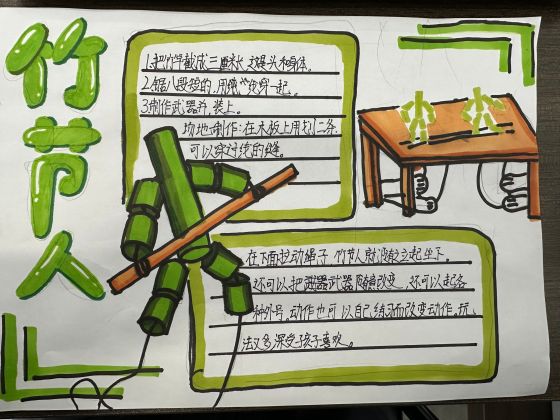 竹节人
1.把竹竿截成三厘米长 这是头和身体。
2.锯八段短的,用线穿一起。
3.制作武器并装上。
场地制作:在木板上用划一条
可以穿过线的缝。
在下面拉动绳子 竹节人就没站立起坐下。
还可以把武器随意改变,还可以起名
种外号,动作也可以自己练习而改变动作,玩
法又多深受孩子喜欢。